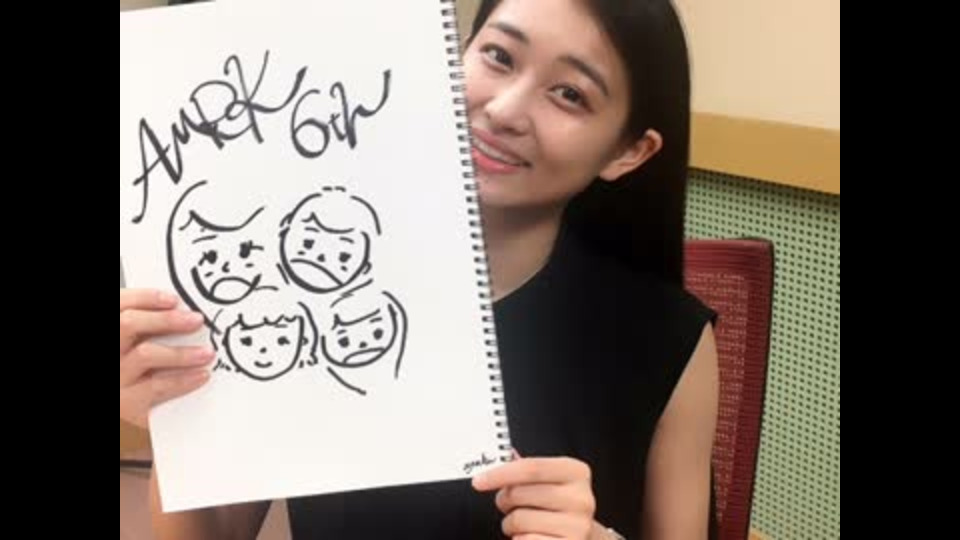 AMRK 6th
ayaka